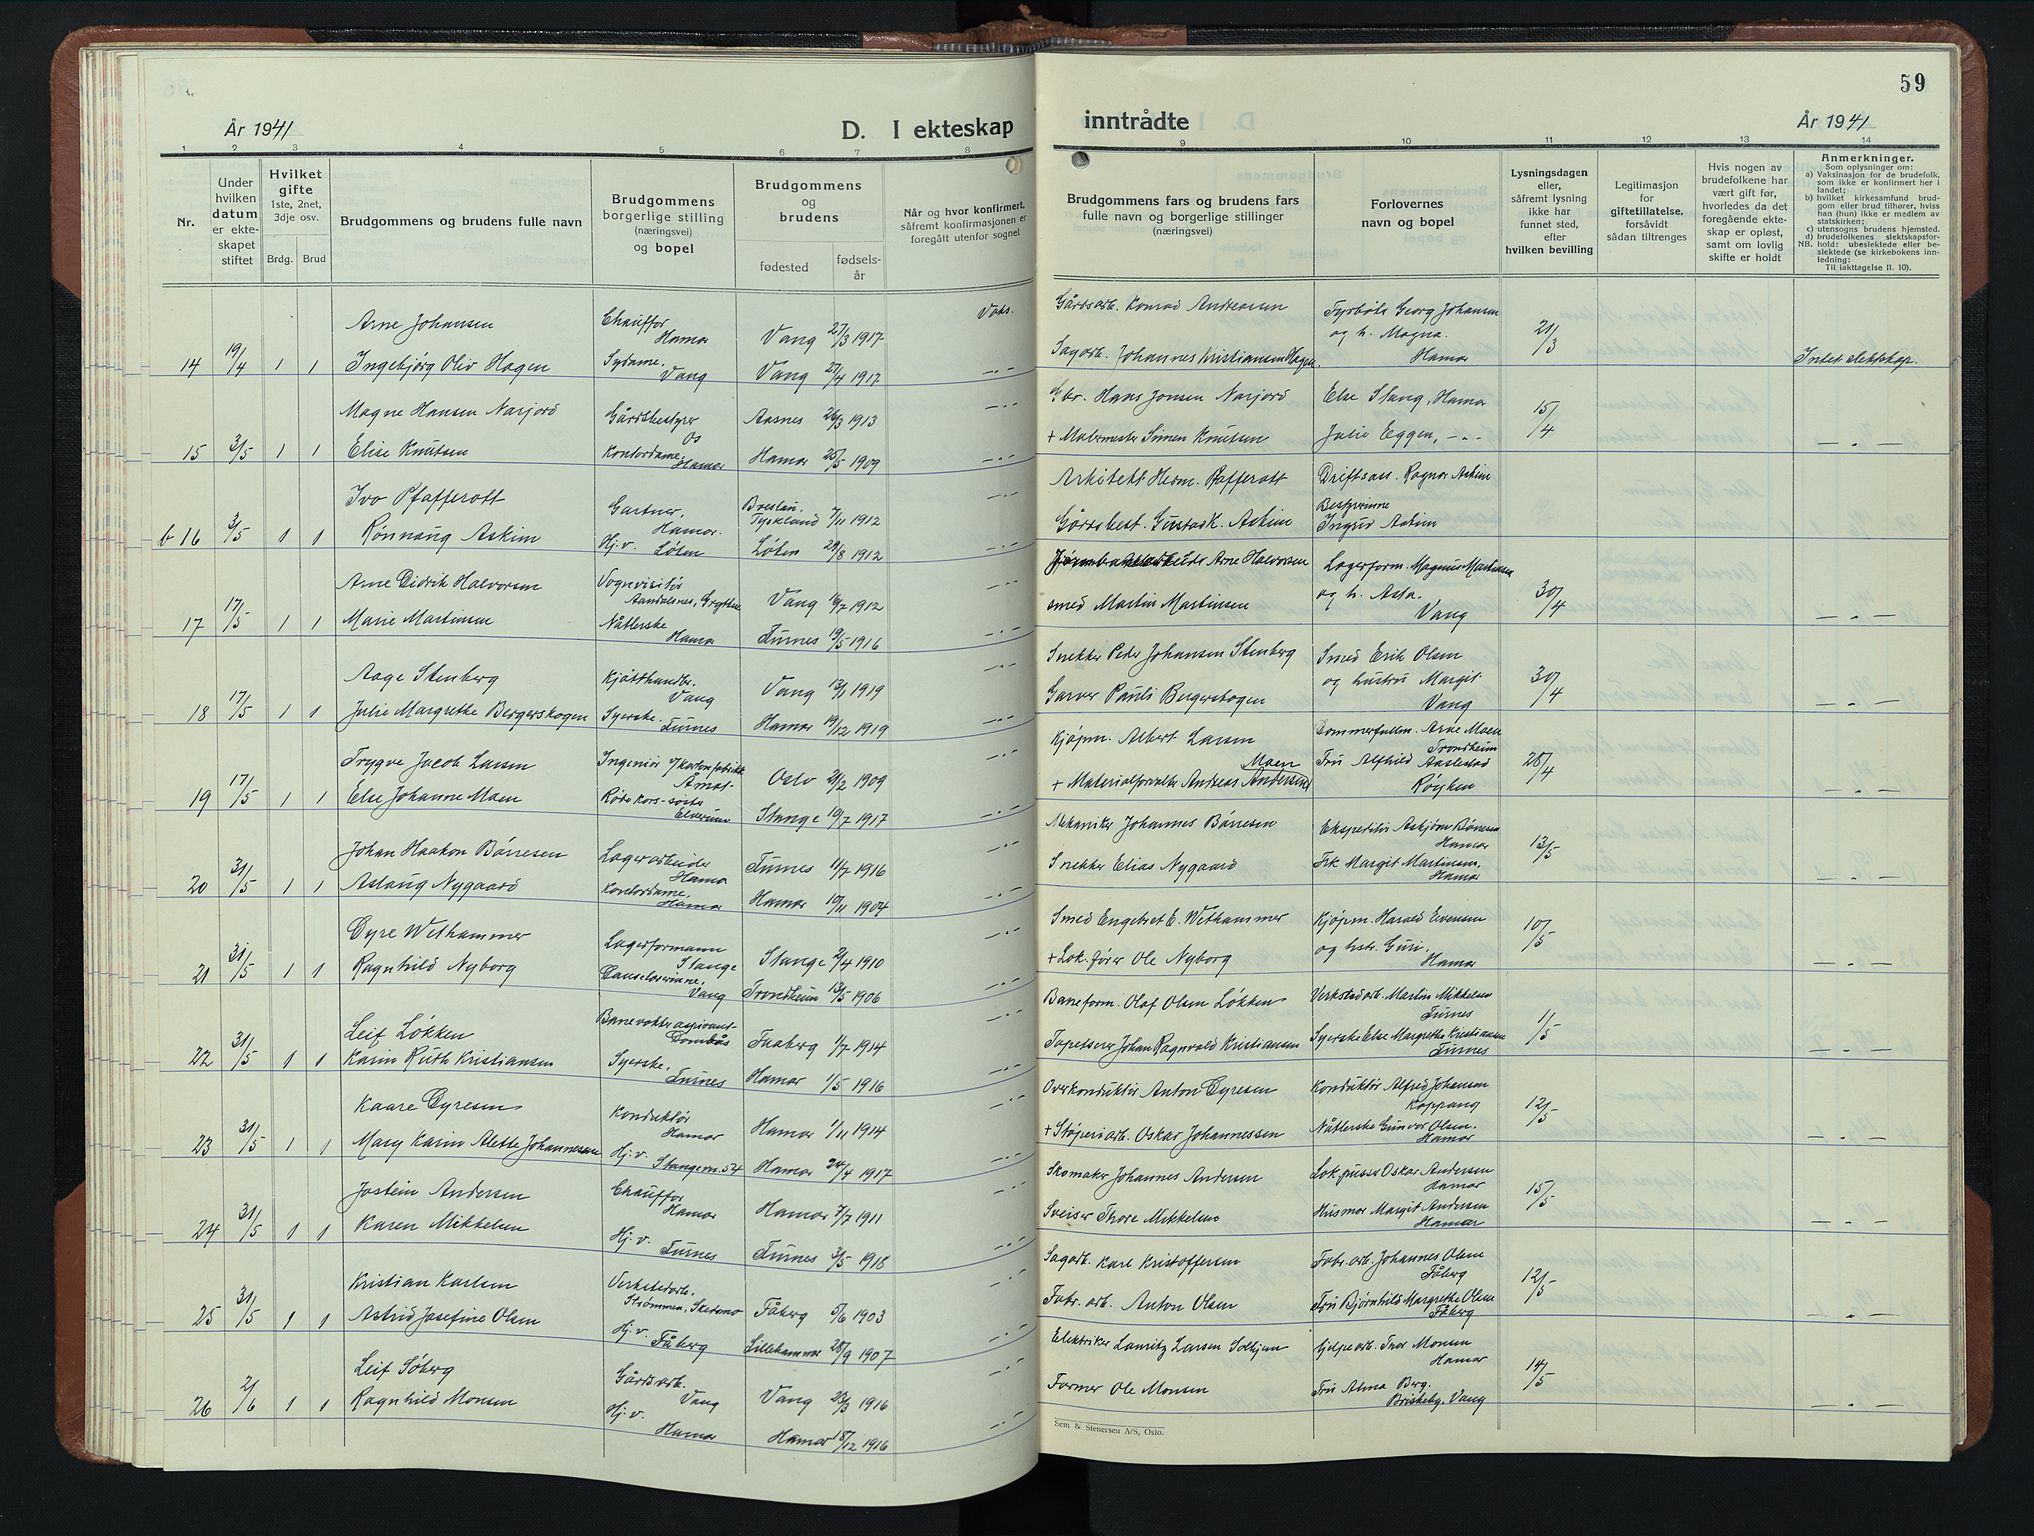 59
År 1941
D. I ekteskap
inntrådte
År 1941
1 2 3 4 5 6 7 8 9 10 11 12 13 14
Nr.
Under hvilken datum er ekteskapet stiftet
Hvilket gifte 1ste, 2net, 3dje osv.
Brdg. Brud
Brudgommens og brudens fulle navn
Brudgommens borgerlige stilling (næringsvei) og bopel
Brudgommens og brudens
fødested
fødselsår
Når og hvor konfirmert, såfremt konfirmasjonen er foregått utenfor sognet
Brudgommens fars og brudens fars fulle navn og borgerlige stillinger (næringsvei)
Forlovernes navn og bopel
Lysningsdagen eller, såfremt lysning ikke har funnet sted, efter hvilken bevilling
Legitimasjon for giftetillatelse, forsåvidt sådan tiltrenges
Hvis nogen av brudefolkene har vært gift før, hvorledes da det foregående ekteskap er opløst, samt om lovlig skifte er holdt
Anmerkninger.
Som oplysninger om:
a) Vaksinasjon for de brudefolk, som ikke er konfirmert her i landet;
b) hvilket kirkesamfund brudgom eller brud tilhører, hviss han (hun) ikke er medlem av statskirken;
c) utensogns brudens hjemsted.
d) brudefolkenes slektskapsforhold: ubeslektede eller beslektede (se kirkebokens innledning:
NB.
Til iakttagelse II. 10).
Arne Johansen Chauffør Hamar Vang 27/3 1917 Vaks. Gårdsarb. Konrad Andreassen Georg Johansen og h. Magna. Hamar 21/3
14 19/4 1 1 Ingebjørg Oliv Hagen Sydame. Vang Vang 27/4 1917 —"— Sagarb. Johannes Kristiansen Hagen. Intet slektskap.
Magne Hansen Narjord Gårdsbestyrer Os Aasnes 26/3 1913 —"— Gbr. Hans Jonsen Narjord Else Stang, Hamar 15/4
15 3/5 1 1 Elise Knutsen Kontordame Hamar Hamar 25/5 1909 —"— + Malermester Simen Knutsen Julie Eggen, —"— —"—
Ivo Pfafferott Gartner, Hamar. Breslau, Tyskland 7/11 1912 —"— Arkitekt Herm. Pfafferott Driftsass. Ragnar Askim
b 16 3/5 1 1 Rønnaug Askim Hj.v. Løten Løten 29/8 1912 —"— Gårdsbest. Gustav K. Askim Bestyrerinne Ingrid Askim
Arne Didrik Halvorsen Vognvisitør Aandalsnes, Grytten Vang 16/7 1912 —"— Arne Halvorsen Lagerform. Magnus Martinsen og h. Asta. Vang 30/4
17 17/5 1 1 Marie Martinsen Nåtlerske Hamar Furnes 19/5 1916 —"— smed Martin Martinsen —"—
Aage Stenberg Kjøtthandler. Vang Vang 13/1 1919 —"— Snekker Peder Johansen Stenberg Smed Erik Olsen og hustru Margit Vang 30/4
18 17/5 1 1 Julie Margrethe Bergerskogen Syerske. Furnes Hamar 19/12 1919 —"— Garver Pauli Bergerskogen —"—
Trygve Jacob Larsen Ingeniør v/Kartonfabrikk Åmot Oslo 21/2 1909 —"— Kjøpm. Albert Larsen Dommerfullm. Arne Moen Trondheim 28/4
19 17/5 1 1 Else Johanne Moen Røde kors-søster Elverum Stange 10/7 1917 —"— + Materialforvalter Andreas Andersen Moen Fru Alfhild Aaslestad Røyken —"—
Johan Haakon Børresen Lagerarbeider Hamar Furnes 11/7 1916 —"— Mekaniker Johannes Børresen Ekspeditør Asbjørn Børresen Hamar 13/5
20 31/5 1 1 Aslaug Nygaard Kontordame Hamar Hamar 10/11 1904 —"— Snekker Elias Nygaard Frk Margit Martinsen, Hamar —"—
Dyre Wethammer Lagerformann Stange Stange 2/4 1910 —"— Smed Engebret E. Wethammer Kjøpm. Harald Evensen og hstr. Guri, Hamar 10/5
21 31/5 1 1 Ragnhild Nyborg Danselærerinne, Vang Trondheim 13/5 1906 —"— + Lok.fører Ole Nyborg —"—
Leif Løkken Banevokteraspirant Dombås Faaberg 1/7 1914 —"— Baneform. Olaf Olsen Løkken Verkstedarb. Martin Mikkelsen Furnes 1/5
22 31/5 1 1 Karin Ruth Kristiansen Syerske. Furnes Hamar 1/5 1916 —"— Tapetserer Johan Ragnvald Kristiansen Syerske Else Margrethe Kristiansen Furnes —"—
Kaare Dyresen Konduktør Hamar Hamar 1/11 1914 —"— Overkonduktør Anton Dyresen Konduktør Alfred Johansen Koppang 12/5
23 31/5 1 1 Mary Karin Alette Johannessen Hj.v. Stangevn. 54 Hamar 24/4 1917 —"— + Støperiarb. Oskar Johannessen Nåtlerske Gunvor Olsen. Hamar —"—
Jostein Andersen Chauffør Hamar Hamar 7/7 1911 —"— Skomaker Johannes Andersen Lokpusser Oskar Andersen Hamar 15/5
24 31/5 1 1 Karen Mikkelsen Hj.v. Furnes Furnes 3/5 1918 —"— Sveiser Thore Mikkelsen Husmor Margit Andersen Hamar —"—
Kristian Karlsen Verkstedarb. Strømmen, Skedsmo Fåberg 5/6 1903 —"— Sagarb. Kare Kristoffersen Fabr. arb. Johannes Olsen Fåberg 12/5
25 31/5 1 1 Astrid Josefine Olsen Hj.v. Fåberg Lillehammer 28/9 1907 —"— Fabr. arb. Anton Olsen Fru Bjørnhild Margrethe Olsen Fåberg —"—
Leif Søberg Gårdsarb. Vang Vang 23/3 1916 —"— Elektriker Lauritz Larsen Hjelpearb. Thor Monsen Hamar 14/5
26 2/6 1 1 Ragnhild Monsen Hj.v. Hamar Hamar 18/12 1916 —"— Former Ole Monsen Fru Alma Berg. Briskeby, Vang —"—
Sem & Stenersen A/S, Oslo.